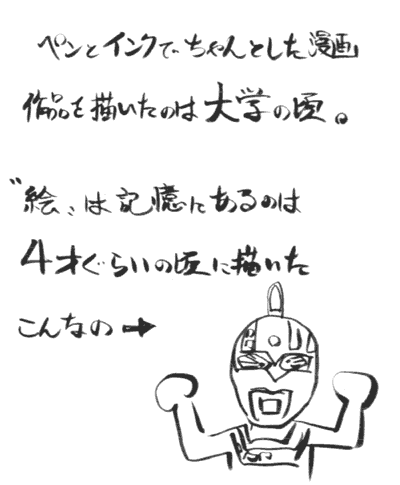 ペンとインクで、ちゃんとした漫画
作品を描いたのは大学の頃。
〝絵〟は記憶にあるのは
4才ぐらいの頃に描いた
こんなの→